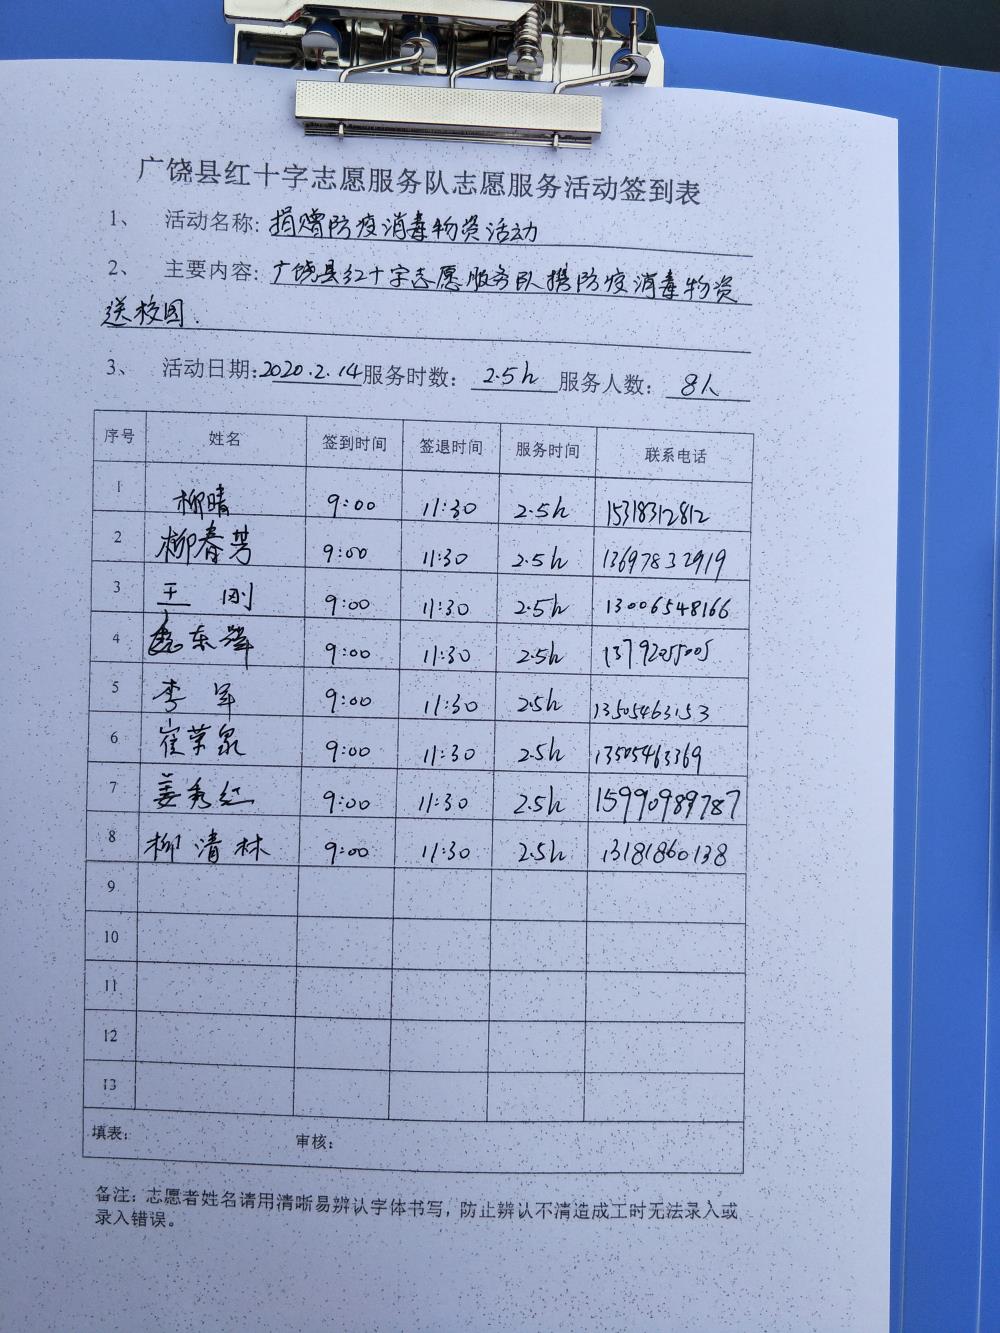 广饶县红十字志愿服务队志愿服务活动签到表
1、 活动名称: 捐赠防疫消毒物资活动
2、 主要内容: 广饶县红十字志愿服务队携防疫消毒物资
送校园.
3、 活动日期: 2020.2.14 服务时数: 2.5h 服务人数: 8人
序号 姓名 签到时间 签退时间 服务时间 联系电话
1 柳晴 9:00 11:30 2.5h 15318312812
2 柳春芳 9:00 11:30 2.5h 13697832919
3 王刚 9:00 11:30 2.5h 13006548166
4 东 9:00 11:30 2.5h 13792055005
5 李军 9:00 11:30 2.5h 13505463153
6 崔荣泉 9:00 11:30 2.5h 13505463369
7 姜秀红 9:00 11:30 2.5h 15990989787
8 柳清林 9:00 11:30 2.5h 13181860138
9
10
11
12
13
填表: 审核:
备注: 志愿者姓名请用清晰易辨认字体书写, 防止辨认不清造成工时无法录入或
录入错误。